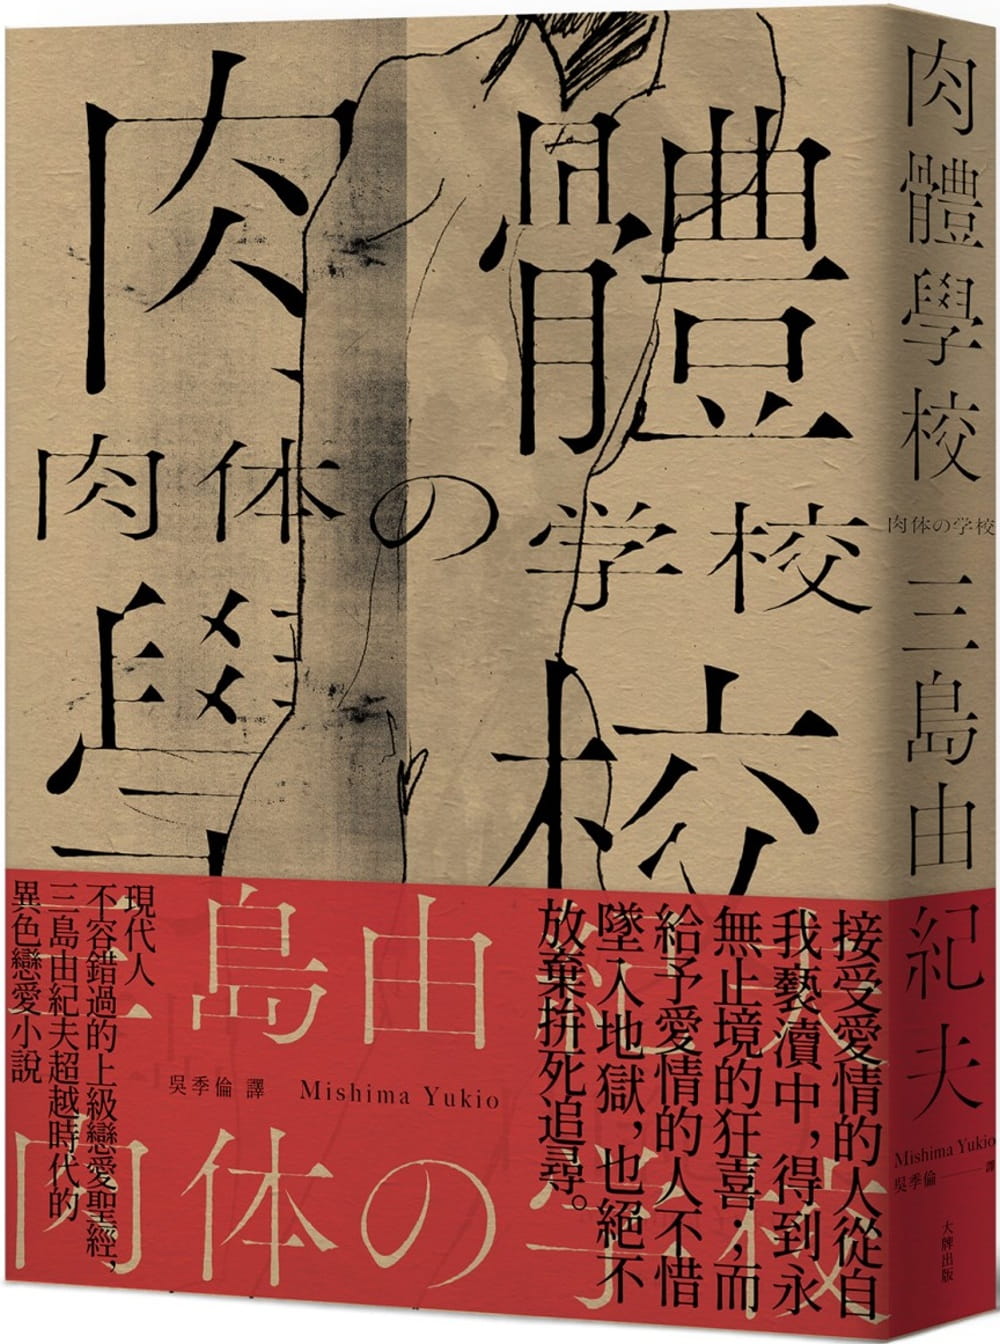 肉體
肉体の学校
學校
三島由紀夫
吳季倫 譯 Mishima Yukio
肉体の学校
接受愛情的人從自
我褻瀆中，得到永
無止境的狂喜；而
給予愛情的人不惜
墜入地獄，也絕不
放棄拚死追尋。
現代人
不容錯過的上級戀愛聖經，
三島由紀夫超越時代的
異色戀愛小說
肉體學校
肉体の学校
三島由紀夫
Mishima Yukio
吳季倫——譯
大牌出版